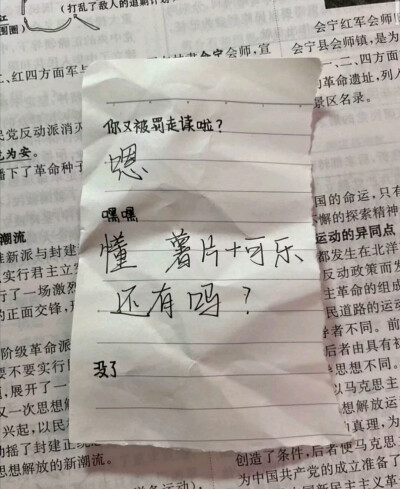 (打乱了敌人的追剿计划
会宁红军会师
会宁县会师镇，是为
会宁会师，宣
、红四方面军与
一、二、四方面
的革命遗址，列入
景区名录。
民党反动派消灭
为安。
播下了革命种子
你又被罚走读啦？
嗯
嘿嘿
懂 薯片+可乐
还有吗？
没了
国的命运，只有
懈的探索精神
运动的异同点
都发生在北洋
反动政策而发
主革命的组成
民道路的运动
者不同。前
后者由具有初
想不同。
以马克思主
想解放运
的真理，为
创造了条件，后者使马克思主
为中国共产党的成立准备了
新潮流
维新派与封建
实行君主立宪
行了一场激烈
的正面交锋，
阶级革命派
要不要实行
，展开了一
又一次思想
兴起，以民
动摇了封建
思想解放的新潮流。